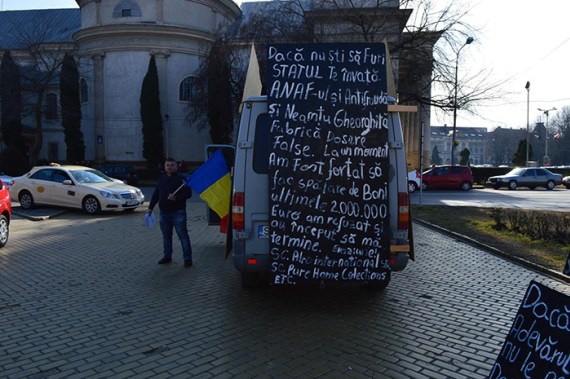 Dacă nu ști să Furi
STATUL Te învață
ANAF-ul și Antifraudă
și Neamțu Gheorghiță
Fabrică Dosare
False. La un moment
Am Fost forțat să
fac spălare de Bani
ultimele 2.000.000
Euro am refuzat și
au început să mă
termine. Emailul
SC. Alno international
SC. Pure Home Colections
ETC.
Dacă
Adevărul
nu le